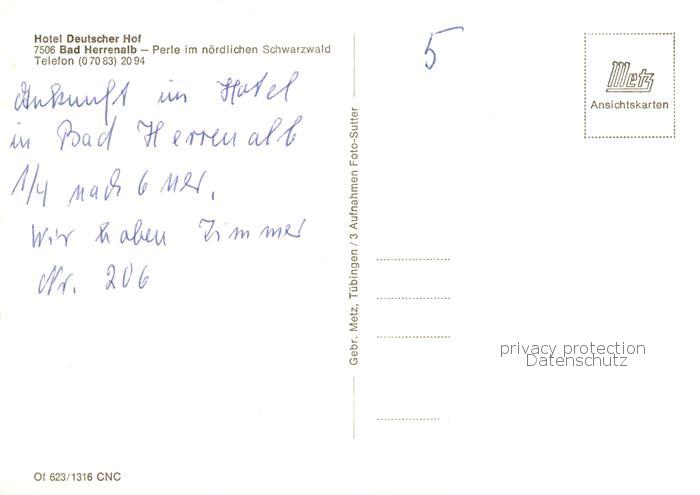 Hotel Deutscher Hof
7506 Bad Herrenalb – Perle im nördlichen Schwarzwald
Telefon (0 70 83) 20 94
Ankunft im Hotel
in Bad Herrenalb
1/4 nach 6 Uhr.
Wir haben Zimmer
Nr. 206
Of 623/1316 CNC
Gebr. Metz, Tübingen / 3 Aufnahmen Foto-Sutter
5
Metz
Ansichtskarten
privacy protection
Datenschutz